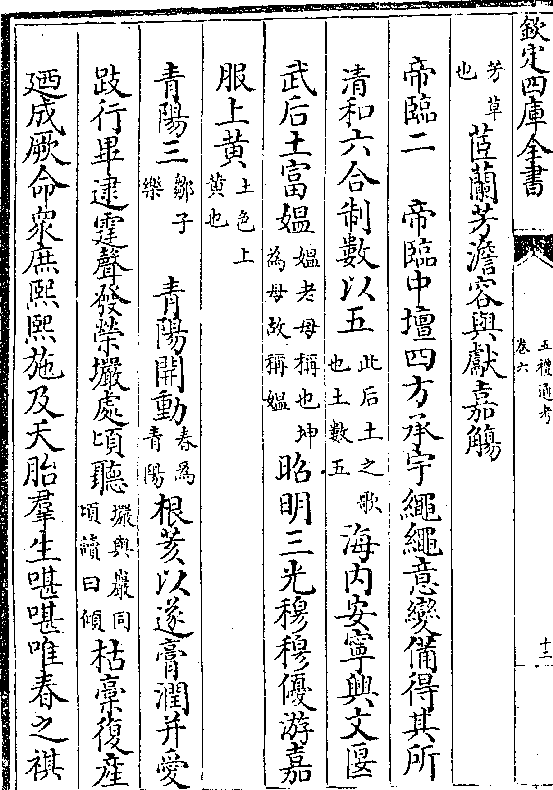 欽定四庫全書
五禮通考
卷六
十二
芳草
也
茝蘭芳澹容與獻嘉觴
帝臨二　帝臨中壇四方承宇繩繩意變備得其所
清和六合制數以五
此后土之歌
也土數五
海内安寧興文匽
武后土富媪
媪老母稱也坤
為母故稱媪
昭明三光穆穆優游嘉
服上黄
土色上
黄也
青陽三
鄒子
樂
青陽開動
春為
青陽
根荄以遂膏潤并愛
跂行畢逮霆聲發榮壧處頃聽
壧與巖同
頃讀曰傾
枯槀復産
廼成厥命衆庶熙熙施及夭胎羣生啿啿唯春之祺